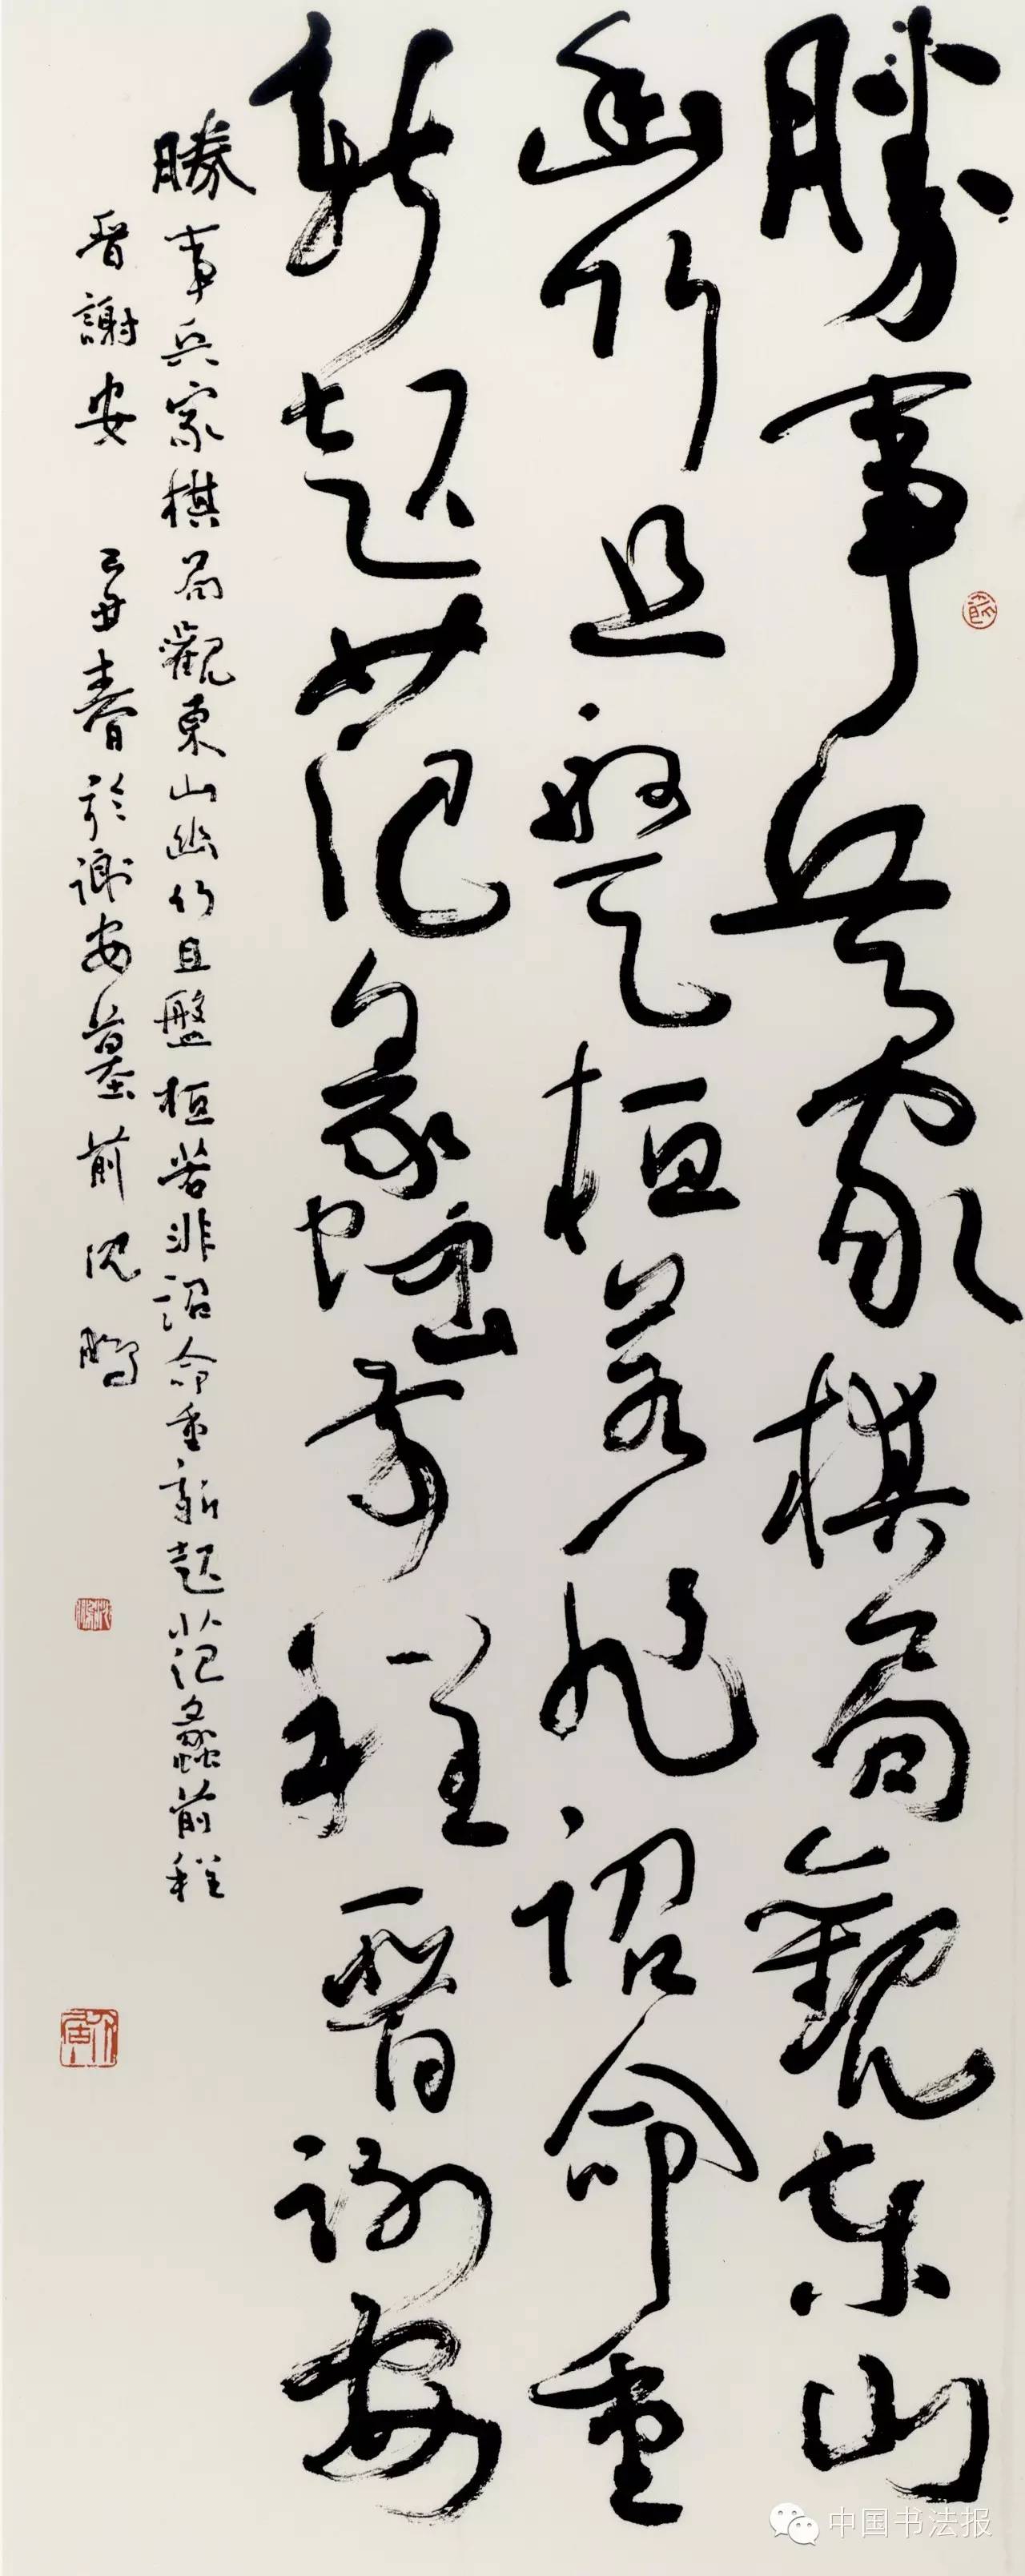 勝事兵家棋局觀東山
幽竹且盤桓若非詔命重
新起范蠡前程晉謝安
勝事兵家棋局觀東山幽竹且盤桓若非詔命重新起范蠡前程
晉謝安 己丑春於謝安墓前沈鵬
中国书法报